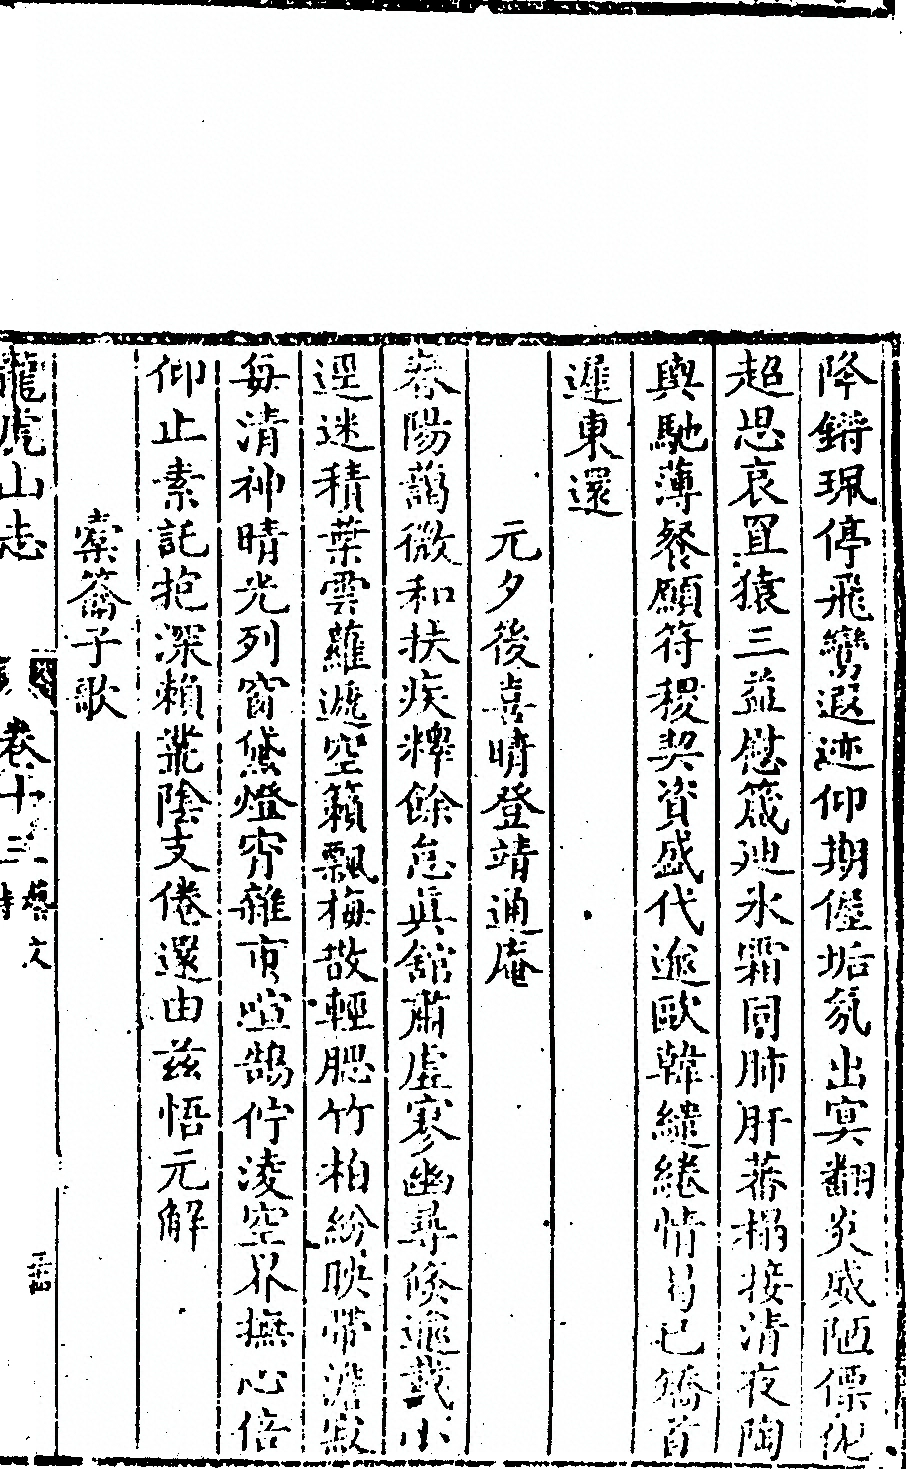 降鏘珮停飛鸞遐迹仰期偓垢氛出寞翻炎威陋僄佌
超思哀罝猿三益慰箴迆氷霜同肺肝蕃榻接清夜陶
輿馳薄餐願符稷契資盛代遊歐韓繾綣情曷已矯首
遲東還
元夕後喜晴登靖通庵
春陽藹微和扶疾釋餘怠真舘肅虛寥幽尋倏遊載小
逕迷積葉雲蘿遞空籟飄梅散輕腮竹柏紛映帶澹寂
每清神晴光列窗黛燈宵雜市喧鵠佇淩空界撫心倍
仰止素託抱深賴叢陰支倦還由兹悟元解
橐籥子歌
龍虎山志 卷十三 藝文 詩